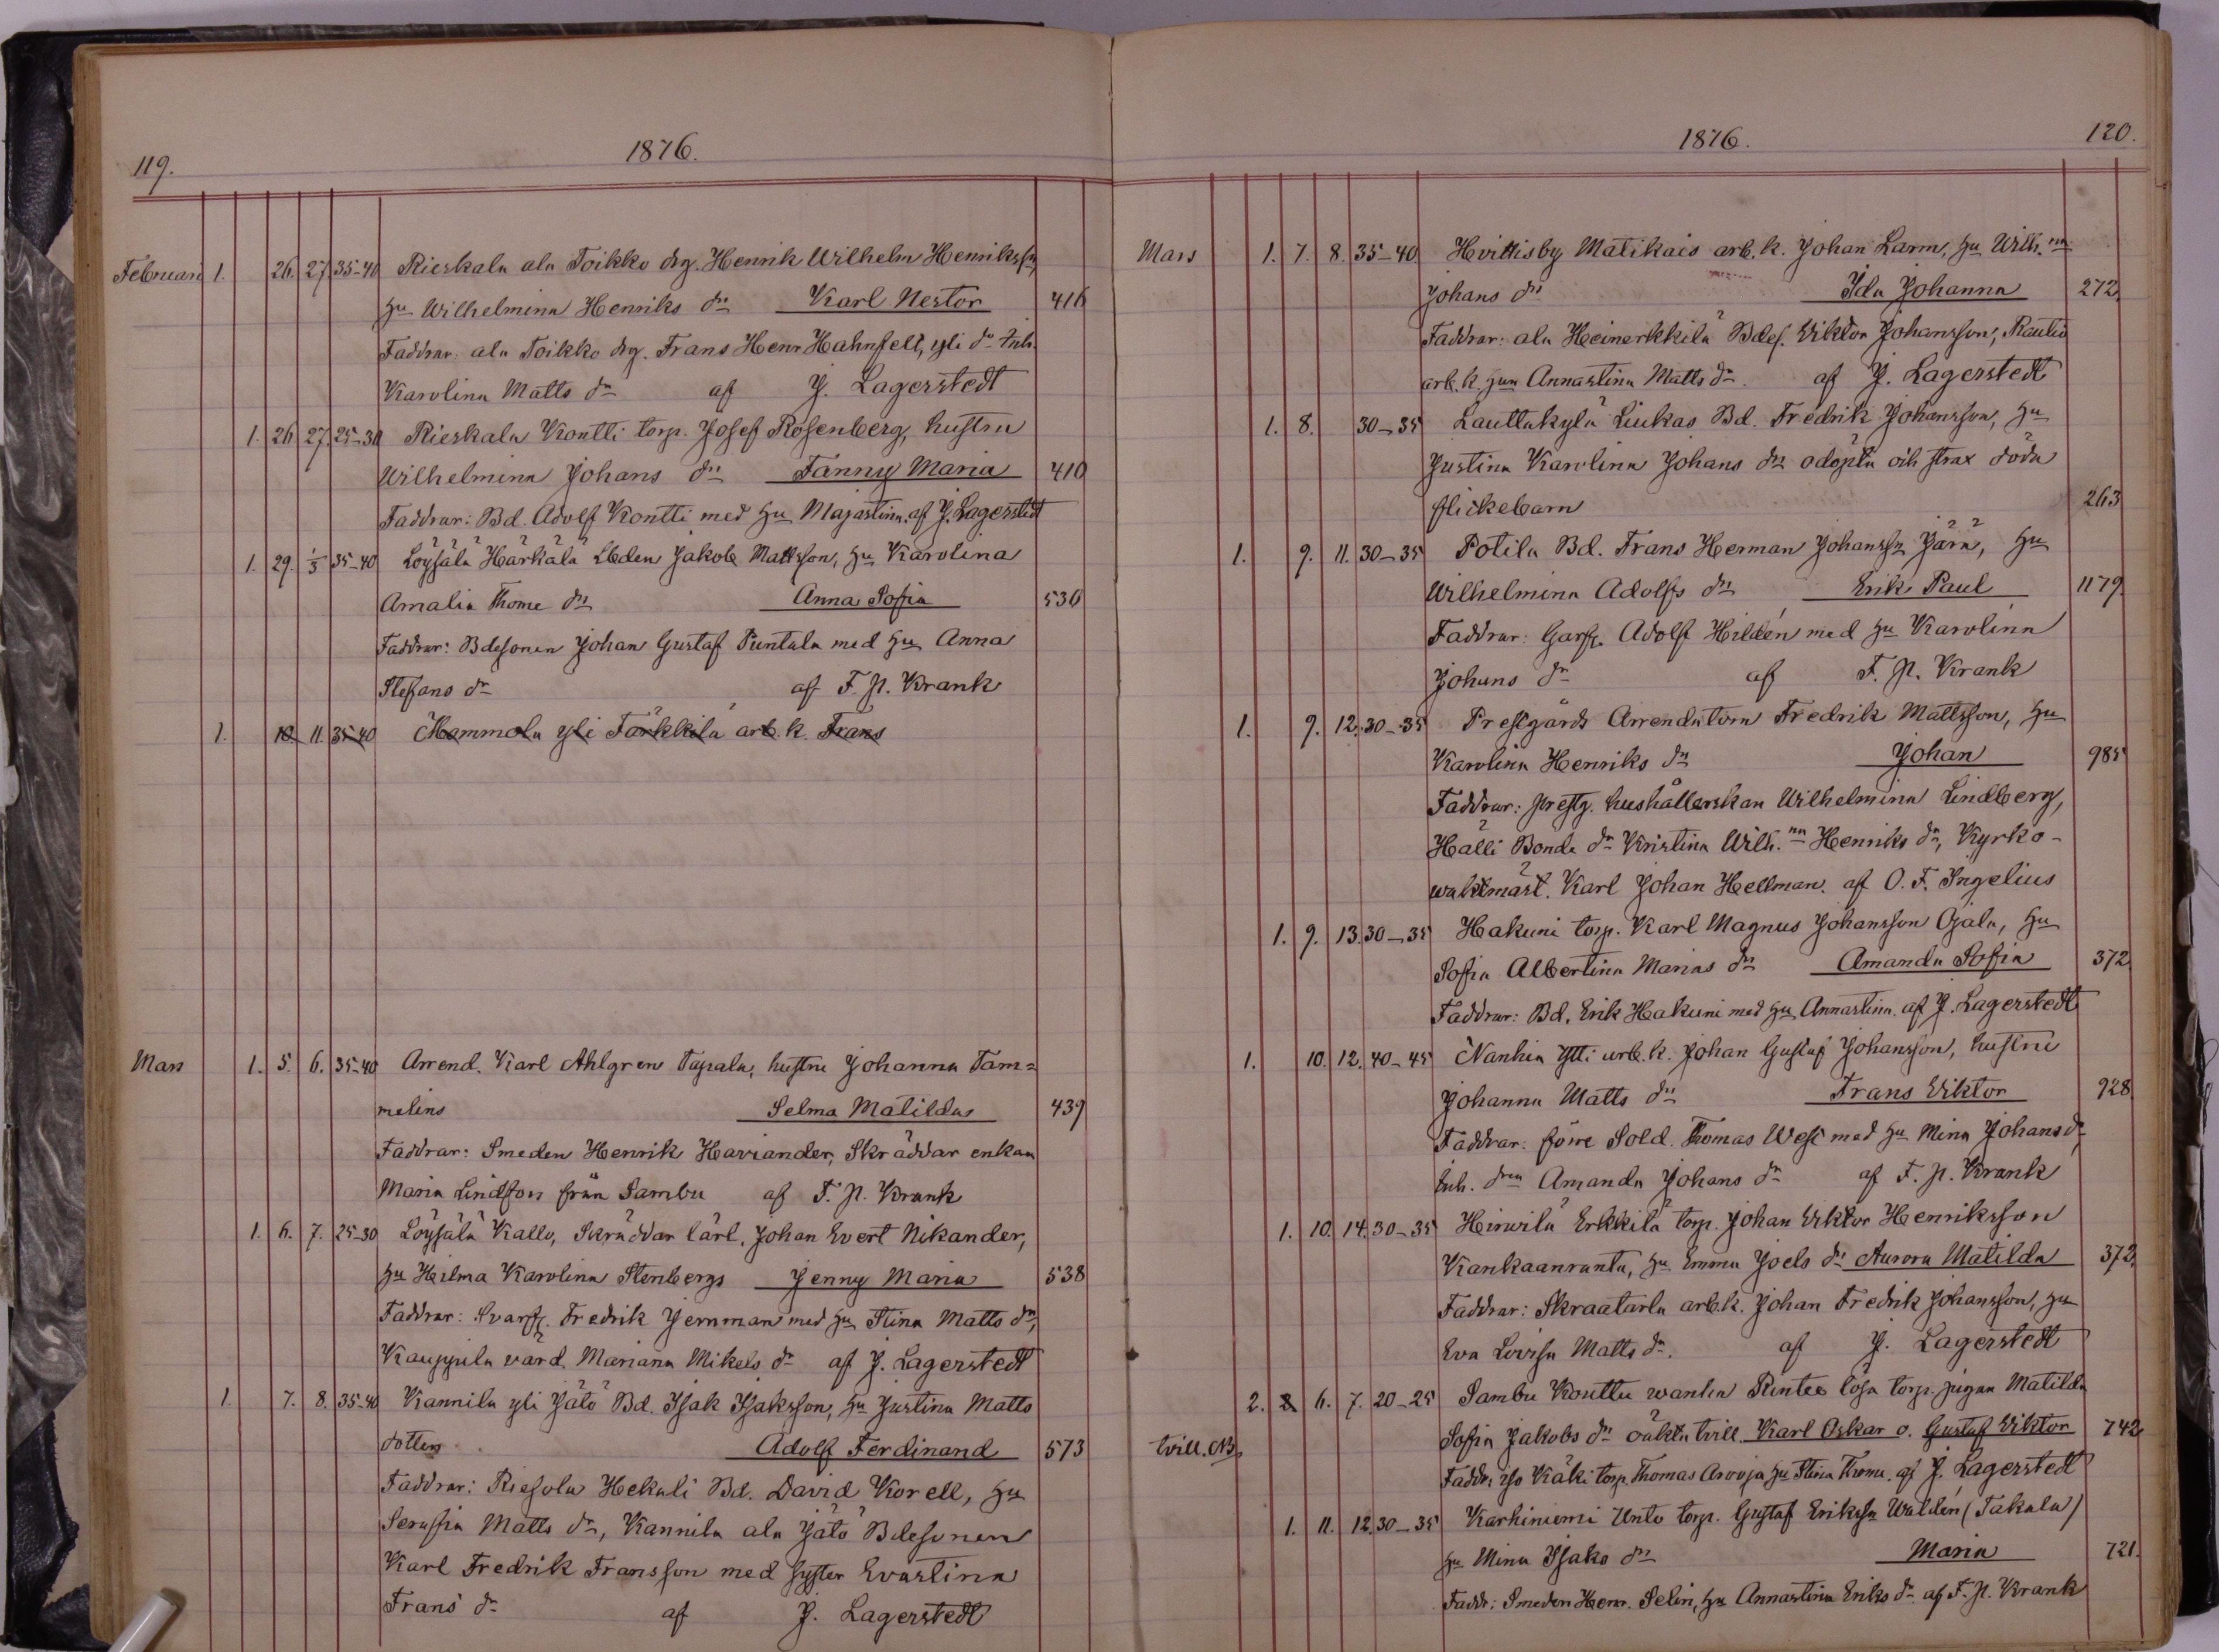 119.
1876.
Februari 1. 26. 27. 35-40 Rieskala ala Toikko drg. Henrik Wilhelm Henrikssn,
hu Wilhelmina Henriks dr Karl Nestor 416
Faddrar: ala Toikko drg. Frans Henr Hahnfelt, yli do Inh.
Karolina Matts dr af J. Lagerstedt
1. 26 27. 25-30 Rieskala Kontti torp. Josef Rosenberg, hustru
Wilhelmina Johans dr Fanny Maria 410
Faddrar: Bd. Adolf Kontti med hu Majastina. af J. Lagerstedt
1. 29. 1/3 35-40 Löysälä Härkälä Jakob Mattsson, hu Karolina
Amalia Thome dr Anna Sofia 536
Faddrar: Bdesonen Johan Gustaf Puntala med hu Anna
Stefans dr af F. P. Krank
1. 10. 11. 35-40 Hammola yli Tärkkilä arb. k. Frans
Mars 1. 5. 6. 35-40 Arrend. Karl Ahlgren Tapala, hustru Johanna Tam=
melins Selma Matilda 439
Faddrar: Smeden Henrik Haviander, Skräddar enkan
Maria Lindfors från Sambu af F. P. Krank
1. 6. 7. 25-30 Löysälä Kallo, Skräddar lärl. Johan Evert Nikander,
hu Hilma Karolina Stenbergs Jenny Maria 538
Faddrar: Svarfv. Fredrik Jernman med hu Stina Matts dr,
Kauppila värd. Mariana Mikels dr af J. Lagerstedt
1. 7. 8. 35-40 Kannila yli Jätö Bd. Isak Isaksson, hu Justina Matts
dotter Adolf Ferdinand 573
Faddrar: Riesola Hekali Bd. David Korell, hu
Serafia Matts dr, Kannila ala Jätö Bdesonen
Karl Fredrik Fransson med syster Evastina
Frans dr af J. Lagerstedt
1876.
120.
Mars 1. 7. 8. 35-40 Hvittisby Matikais arb. k. Johan Larm, hu Wilh.na
Johans dr Ida Johanna 272
Faddrar: ala Heinerkkilä Bdes. Viktor Johansson, Rautio
arb. k. hun Annastina Matts dr. af J. Lagerstedt
1. 8. 30-35 Lauttakylä Liukas Bd. Fredrik Johansson, hu
Justina Karolina Johans dr odöpta och strax döda
flickebarn 263
1. 9. 11. 30-35 Potila Bd. Frans Herman Johanssn Järä, hu
Wilhelmina Adolfs dr Erik Paul 1179
Faddrar: Garfv. Adolf Hildén med hu Karolina
Johans dr af F. P. Krank
1. 9. 12. 30-35 Prestgårds Arrendatorn Fredrik Mattsson, hu
Karolina Henriks dr Johan 985
Faddrar: prestg. hushållerskan Wilhelmina Lindberg,
Hälli Bonde dr Kristina Wilh.na Henriks dr, Kyrko-
waktmäst. Karl Johan Hellman. af O. F. Ingelius
1. 9. 13. 30-35 Hakuni torp. Karl Magnus Johansson Ojala, hu
Sofia Albertina Marias dr Amanda Sofia 372
Faddrar: Bd. Erik Hakuni med hu Annastina. af J. Lagerstedt
1. 10. 12. 40-45 Nanhia Ylli arb. k. Johan Gustaf Johansson, hustru
Johanna Matts dr Frans Viktor 928
Faddrar: förre Sold. Thomas West med hu Mina Johans dr,
Inh. drn Amanda Johans dr af F. P. Krank
1. 10. 14. 30-35 Heinwila Erkkilä torp. Johan Viktor Henriksson
Kankaanranta, hu Emma Joels dr Aurora Matilda 372
Faddrar: Skraatarla arb. k. Johan Fredrik Johansson, hu
Eva Lovisa Matts dr. af J. Lagerstedt
2. 6. 7. 20-25 Sambu Kouttu wanha Rintee lösa torp. pigan Matilda
Sofia Jakobs dr oäkta tvill Karl Oskar o. Gustaf Viktor 742
tvill. NB
Faddr. iso Käki torp. Thomas Arovja hu Stina Thome. af J. Lagerstedt
1. 11. 12. 30-35 Karhiniemi Unto torp. Gustaf Erikssn Waldén (Takala)
hu Mina Isaks dr Maria 721.
Faddr: Smeden Henr. Selin, hu Annastina Eriks dr af F. P. Krank